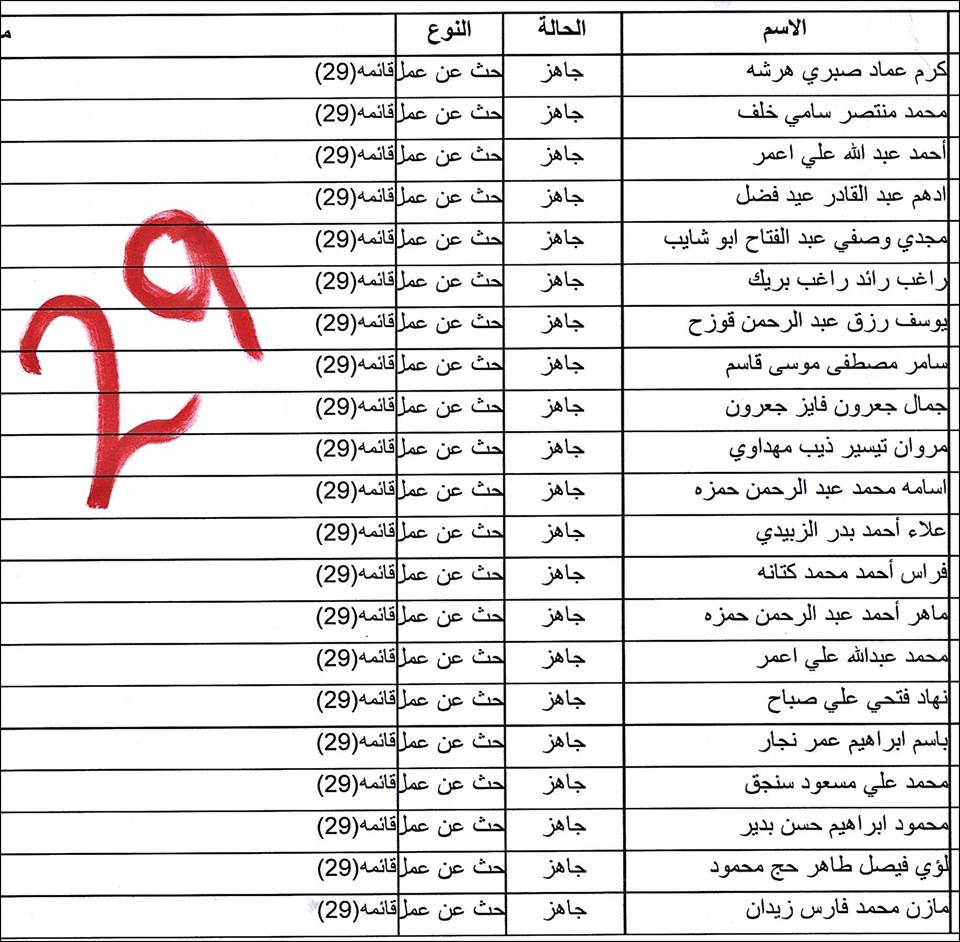 الاسم الحالة النوع م
كرم عماد صبري هرشه جاهز حث عن عمل قائمه(29)
محمد منتصر سامي خلف جاهز حث عن عمل قائمه(29)
أحمد عبد الله علي اعمر جاهز حث عن عمل قائمه(29)
ادهم عبد القادر عيد فضل جاهز حث عن عمل قائمه(29)
مجدي وصفي عبد الفتاح ابو شايب جاهز حث عن عمل قائمه(29)
راغب رائد راغب بريك جاهز حث عن عمل قائمه(29)
يوسف رزق عبد الرحمن قوزح جاهز حث عن عمل قائمه(29)
سامر مصطفى موسى قاسم جاهز حث عن عمل قائمه(29)
جمال جعرون فايز جعرون جاهز حث عن عمل قائمه(29)
مروان تيسير ذيب مهداوي جاهز حث عن عمل قائمه(29)
اسامه محمد عبد الرحمن حمزه جاهز حث عن عمل قائمه(29)
علاء أحمد بدر الزبيدي جاهز حث عن عمل قائمه(29)
فراس أحمد محمد كتانه جاهز حث عن عمل قائمه(29)
ماهر أحمد عبد الرحمن حمزه جاهز حث عن عمل قائمه(29)
محمد عبدالله علي اعمر جاهز حث عن عمل قائمه(29)
نهاد فتحي علي صباح جاهز حث عن عمل قائمه(29)
باسم ابراهيم عمر نجار جاهز حث عن عمل قائمه(29)
محمد علي مسعود سنجق جاهز حث عن عمل قائمه(29)
محمود ابراهيم حسن بدير جاهز حث عن عمل قائمه(29)
لؤي فيصل طاهر حج محمود جاهز حث عن عمل قائمه(29)
مازن محمد فارس زيدان جاهز حث عن عمل قائمه(29)
29